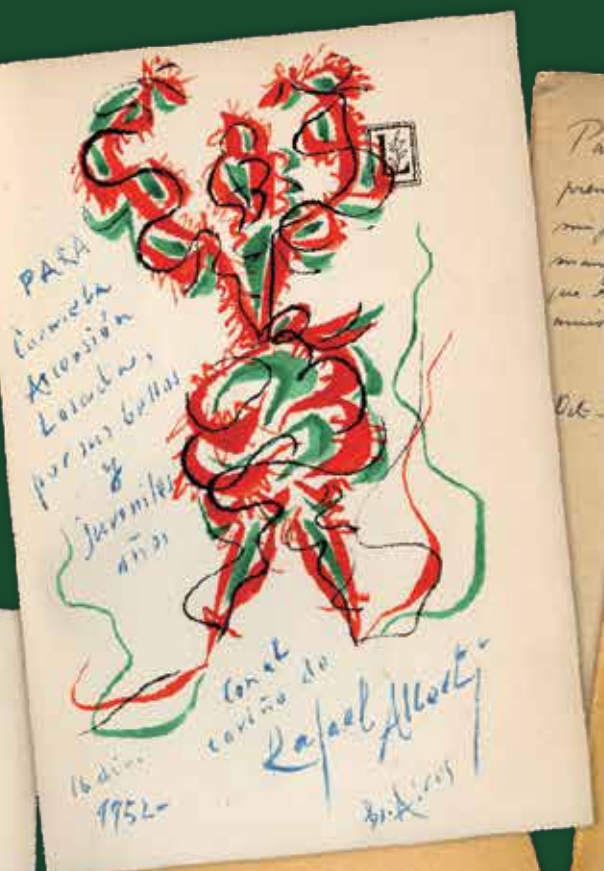 PARA
Carmela
Ascensión
Losada,
por sus bellos
y
juveniles
años
Con el
cariño de
Rafael Alberti
16 dic.
1952-
Bs. Aires
L
Pa
mi
que
Oct-